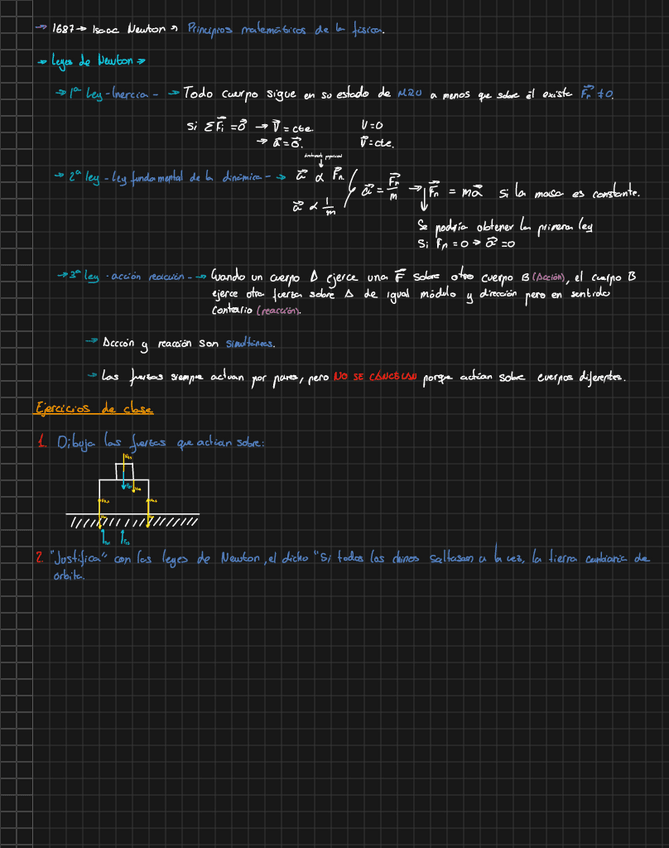 → 1687 → Isaac Newton → Principios matemáticos de la física.
→ Leyes de Newton →
→ 1ª Ley - Inercia - → Todo cuerpo sigue en su estado de MRU a menos que sobre él exista F⃗n ≠ 0.
Si ΣF⃗i = 0⃗ → V⃗ = cte. V = 0
→ a⃗ = 0⃗. V⃗ = cte.
→ 2ª ley - Ley fundamental de la dinámica - → a⃗ ∝ F⃗n / a⃗ = F⃗n/m → F⃗n = ma⃗ si la masa es constante.
a⃗ ∝ 1/m
Se podría obtener la primera ley
Si Fn = 0 → a⃗ = 0
→ 3ª ley - acción reacción - → Cuando un cuerpo A ejerce una F⃗ sobre otro cuerpo B (Acción), el cuerpo B
ejerce otra fuerza sobre A de igual módulo y dirección pero en sentido
contrario (reacción).
→ Acción y reacción son simultáneas.
→ Las fuerzas siempre actúan por pares, pero NO SE CANCELAN porque actúan sobre cuerpos diferentes.
Ejercicios de clase
1. Dibuja las fuerzas que actúan sobre:
2. "Justifica" con las leyes de Newton, el dicho "Si todos los chinos saltasen a la vez, la tierra cambiaría de
órbita.